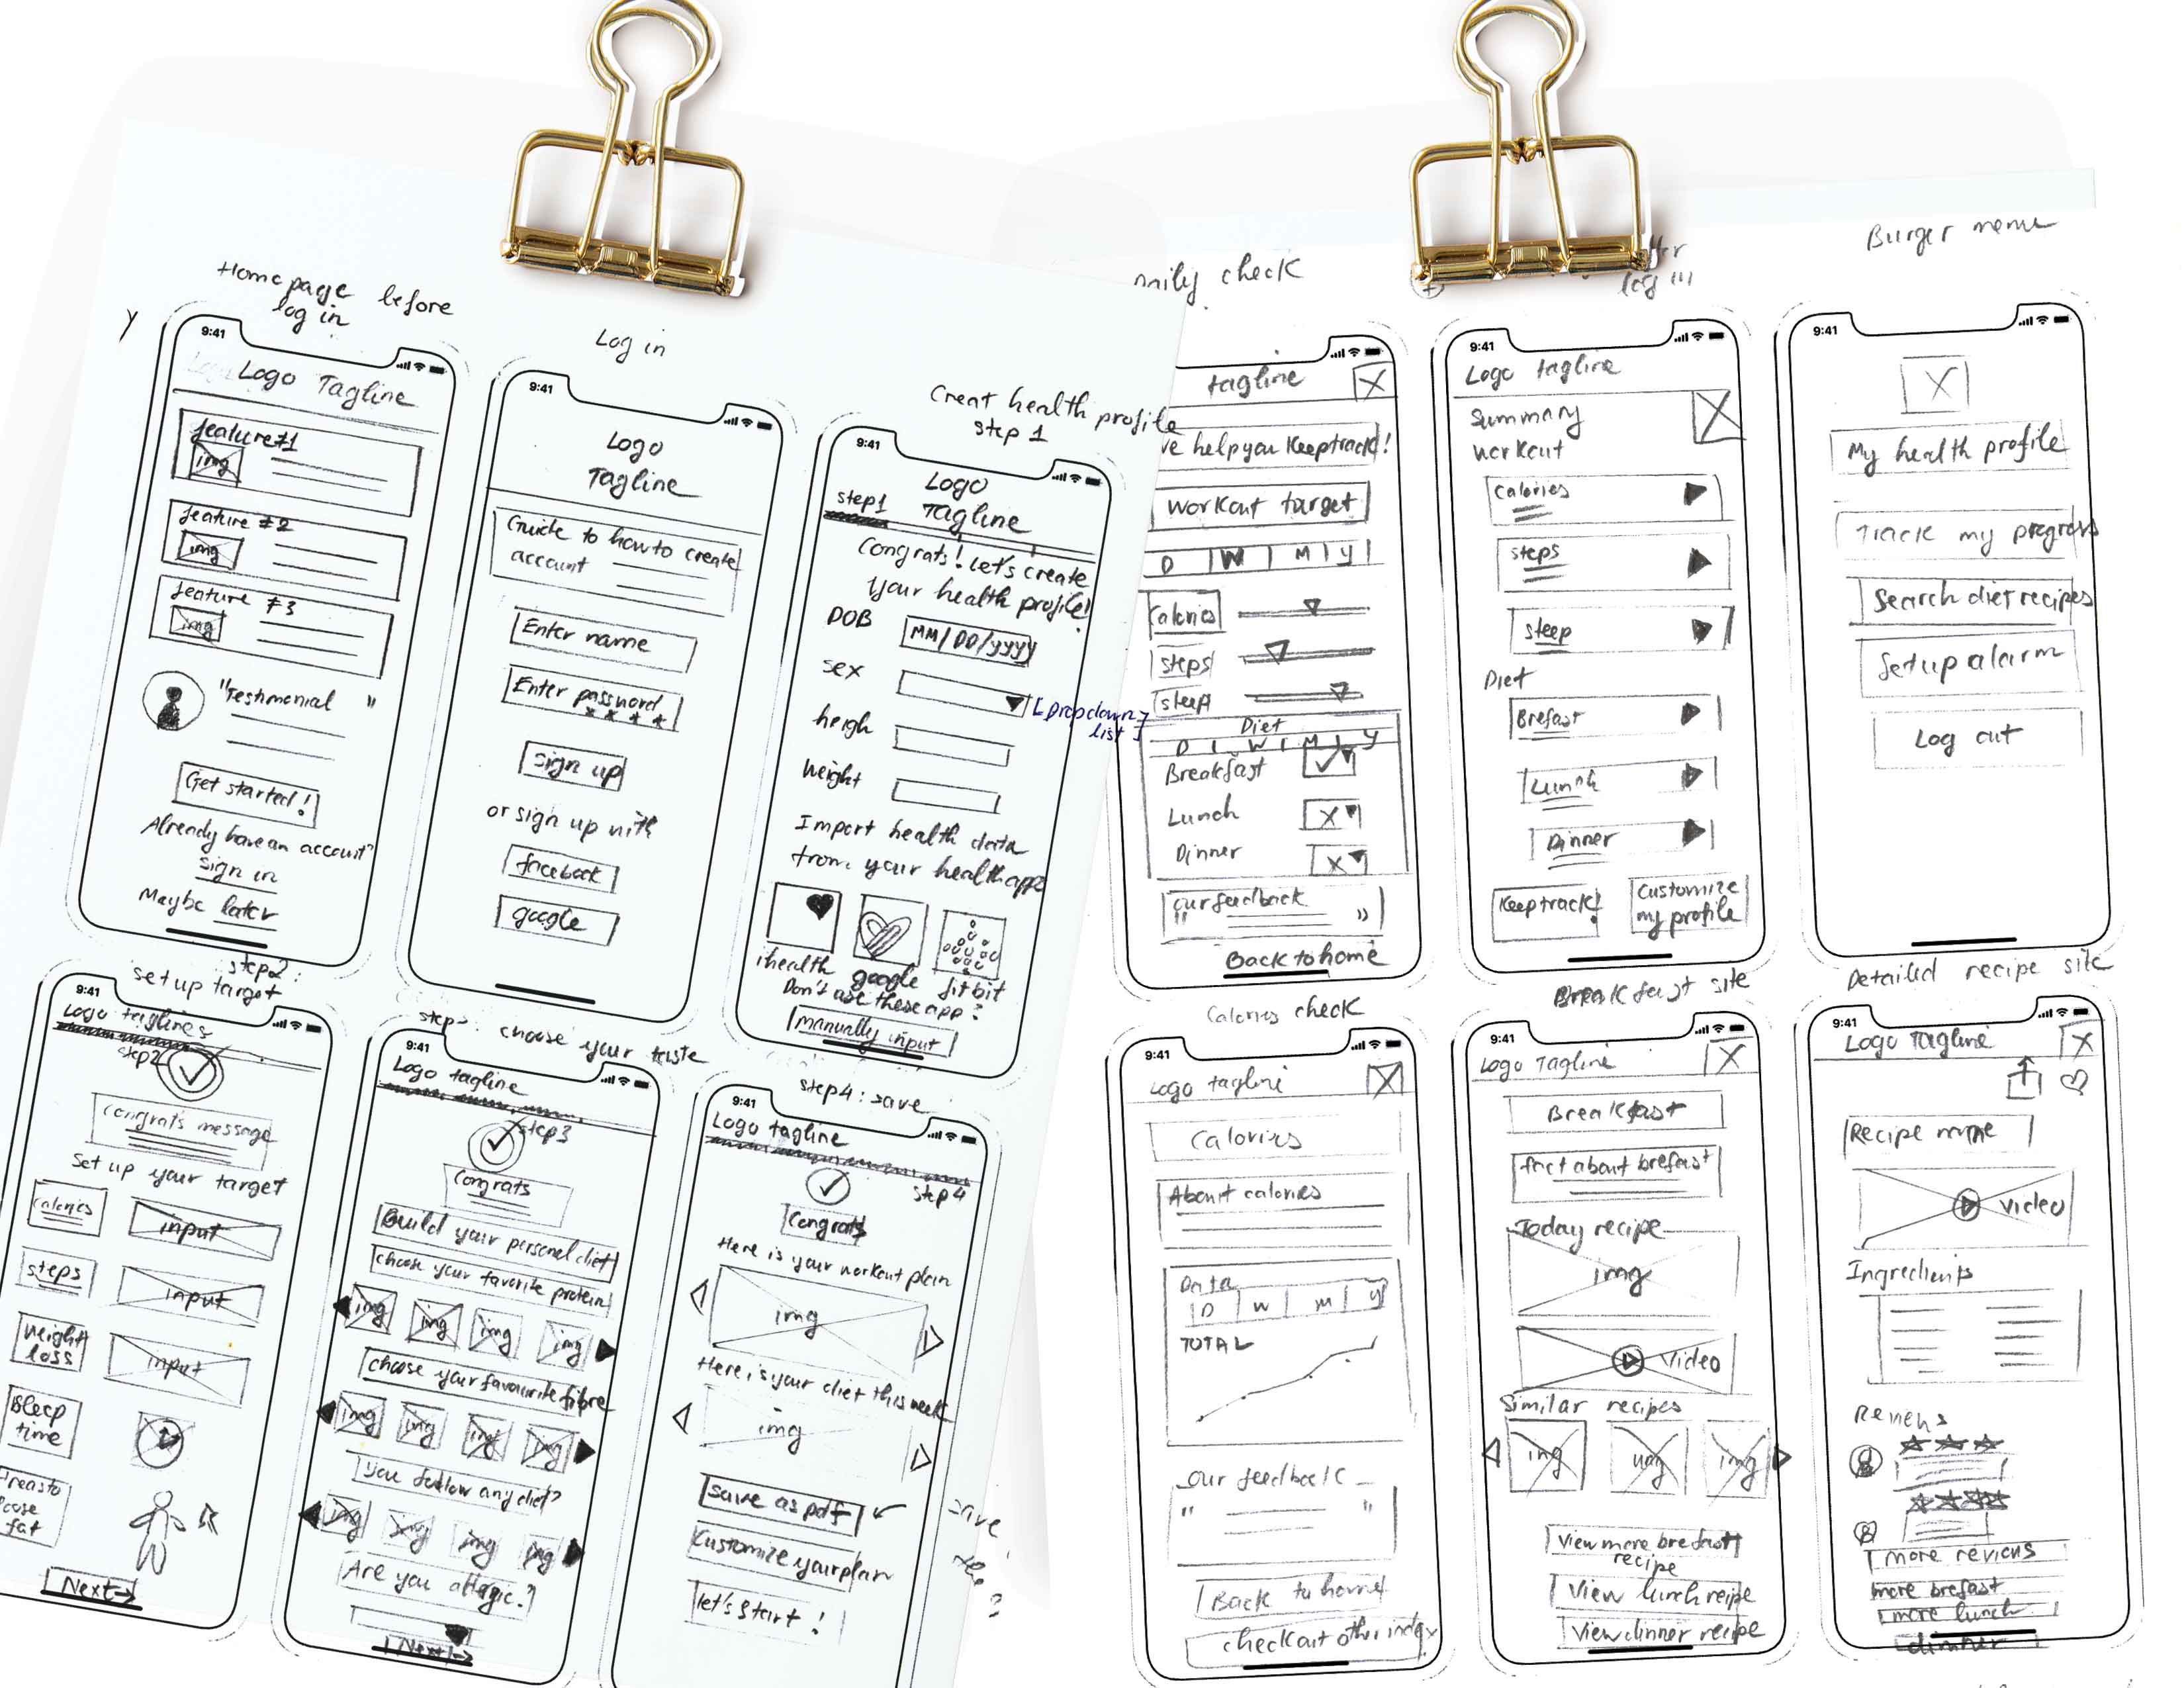 Home page before
log in
9:41
Logo Tagline
feature #1
img
feature #2
img
feature #3
img
"Testimonial "
Get started!
Already have an account?
Sign in
Maybe later
Log in
9:41
Logo
Tagline
Guide to how to create
account
Enter name
Enter password
* * * *
Sign up
or sign up with
facebook
google
Creat health profile
step 1
9:41
Logo
step1 Tagline
Congrats! Let's create
your health profile!
DOB MM/DD/yyyy
sex
[Dropdown
list]
heigh
Weight
Import health data
from your health apps
ihealth google fitbit
Don't use these app?
manually input
step2:
set up target
9:41
Logo taglines
step2
Congrats message
Set up your target
calories input
steps input
Weight
loss input
Sleep
time
fat
Next→
choose your taste
9:41
Logo tagline
step3
Congrats
Build your personal diet
choose your favorite protein
img img img img
choose your favourite fibre
img img img img
you follow any diet?
img img img img
Are you allergic?
Next→
step4: save
9:41
Logo tagline
step4
Congrats
Here is your workout plan
img
Here is your diet this week
img
save as pdf
Customize your plan
let's start!
save
Daily check
tagline
we help you Keep track!
Workout target
D W M Y
Calories
steps
sleep
Diet
D W M Y
Breakfast
Lunch X
Dinner X
our feedback
" "
Back to home
log in
9:41
Logo tagline
Summary
Workout
Calories
steps
sleep
Diet
Brefast
Lunch
Dinner
Keep track!
Customize
my profile
Burger menu
9:41
My health profile
Track my progress
Search diet recipes
Set up alarm
Log out
Calories check
9:41
Logo tagline
Calories
About calories
Data
D W M Y
TOTAL
our feedback
" "
Back to home
check out other index
Breakfast site
9:41
Logo Tagline
Breakfast
fact about brefast
Today recipe
img
video
Similar recipes
img img img
View more brefast
recipe
View lunch recipe
View dinner recipe
Detailed recipe site
9:41
Logo Tagline
Recipe name
video
Ingredients
Reviews
more reviews
more brefast
more lunch
dinner